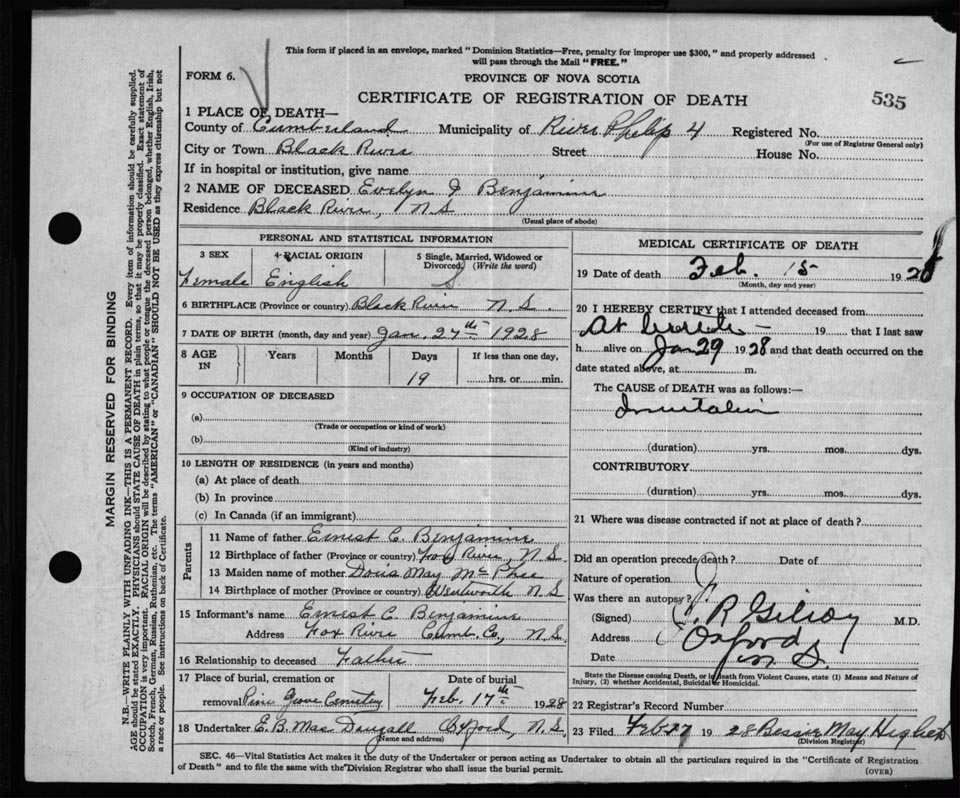 This form if placed in an envelope, marked "Dominion Statistics—Free, penalty for improper use $300," and properly addressed
will pass through the Mail "FREE."
FORM 6.
PROVINCE OF NOVA SCOTIA
CERTIFICATE OF REGISTRATION OF DEATH
535
1 PLACE OF DEATH—
County of Cumberland Municipality of River Philip 4 Registered No.
(For use of Registrar General only)
City or Town Black River Street House No.
If in hospital or institution, give name
2 NAME OF DECEASED Evelyn J Benjamin
Residence Black River, N S
(Usual place of abode)
PERSONAL AND STATISTICAL INFORMATION
3 SEX
4 RACIAL ORIGIN
5 Single, Married, Widowed or Divorced, (Write the word)
Female English S
6 BIRTHPLACE (Province or country) Black River N. S.
7 DATE OF BIRTH (month, day and year) Jan. 27th 1928
8 AGE IN Years Months Days If less than one day,
19 hrs. or min.
9 OCCUPATION OF DECEASED
(a)
(Trade or occupation or kind of work)
(b)
(Kind of industry)
10 LENGTH OF RESIDENCE (in years and months)
(a) At place of death
(b) In province
(c) In Canada (if an immigrant)
Parents
11 Name of father Ernest C. Benjamin
12 Birthplace of father (Province or country) Fox River, N. S.
13 Maiden name of mother Doris May McPhee
14 Birthplace of mother (Province or country) Wentworth N. S
15 Informant's name Ernest C. Benjamin
Address Fox River Cumb. Co., N. S.
16 Relationship to deceased Father
17 Place of burial, cremation or removal Pine Grove Cemetery
Date of burial
Feb. 17th 1928
18 Undertaker E. B. MacDougall Oxford, N. S.
(Name and address)
MEDICAL CERTIFICATE OF DEATH
19 Date of death Feb. 15 1928
(Month, day and year)
20 I HEREBY CERTIFY that I attended deceased from
At 19 that I last saw
h alive on Jan 29 1928 and that death occurred on the
date stated above, at m.
The CAUSE of DEATH was as follows:—
(duration) yrs. mos. dys.
CONTRIBUTORY
(duration) yrs. mos. dys.
21 Where was disease contracted if not at place of death?
Did an operation precede death? Date of
Nature of operation
Was there an autopsy?
(Signed) R Gilroy M.D.
Address Oxford
Date N. S.
State the Disease causing Death, or in death from Violent Causes, state (1) Means and Nature of
Injury, (2) whether Accidental, Suicidal or Homicidal.
22 Registrar's Record Number
23 Filed Feb 17 1928 Bessie May
(Division Registrar)
SEC. 46—Vital Statistics Act makes it the duty of the Undertaker or person acting as Undertaker to obtain all the particulars required in the "Certificate of Registration
of Death" and to file the same with the Division Registrar who shall issue the burial permit.
(OVER)
MARGIN RESERVED FOR BINDING
N.B.—WRITE PLAINLY WITH UNFADING INK—THIS IS A PERMANENT RECORD. Every item of information should be carefully supplied.
AGE should be stated EXACTLY. PHYSICIANS should STATE CAUSE OF DEATH in plain terms, so that it may be properly classified. Exact statement of
OCCUPATION is very important. RACIAL ORIGIN will be described by stating to what people or tongue the deceased person belonged, whether English, Irish,
Scotch, French, German, Russian, Ruthenian, etc. The terms "AMERICAN" or "CANADIAN" SHOULD NOT BE USED as they express citizenship but not
a race or people. See instructions on back of Certificate.